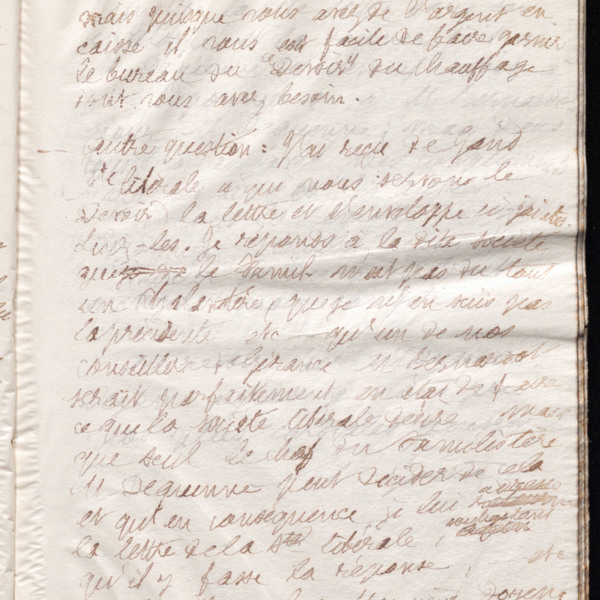 mais puisque vous avez de l'argent en
caisse il vous est facile de faire garnir
le bureau du "Devoir" du chauffage
dont vous avez besoin.
Autre question : J'ai reçu de Gand
Sté libérale à qui nous servons le
Devoir, la lettre et l'enveloppe ci jointes.
Lisez-les. Je réponds à la dite société
que le Famil. n'est pas du tout
un Phalanstère, que je n'en suis pas
la présidente etc. qu'un de nos
conseillers de Gérance M. Bernardot
serait parfaitement en état de faire
ce que la Société libérale désire mais
que seul le chef du Familistère
M. Dequenne peut décider de cela
et qu'en conséquence je lui
la lettre de la Sté libérale,
qu'il y fasse la réponse,